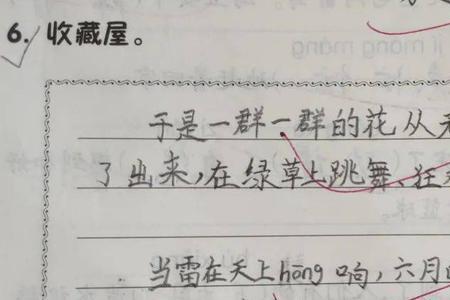 6. 收藏屋。
于是一群一群的花从
了出来,在绿草上跳舞、狂
当雷在天上hōng响,六月